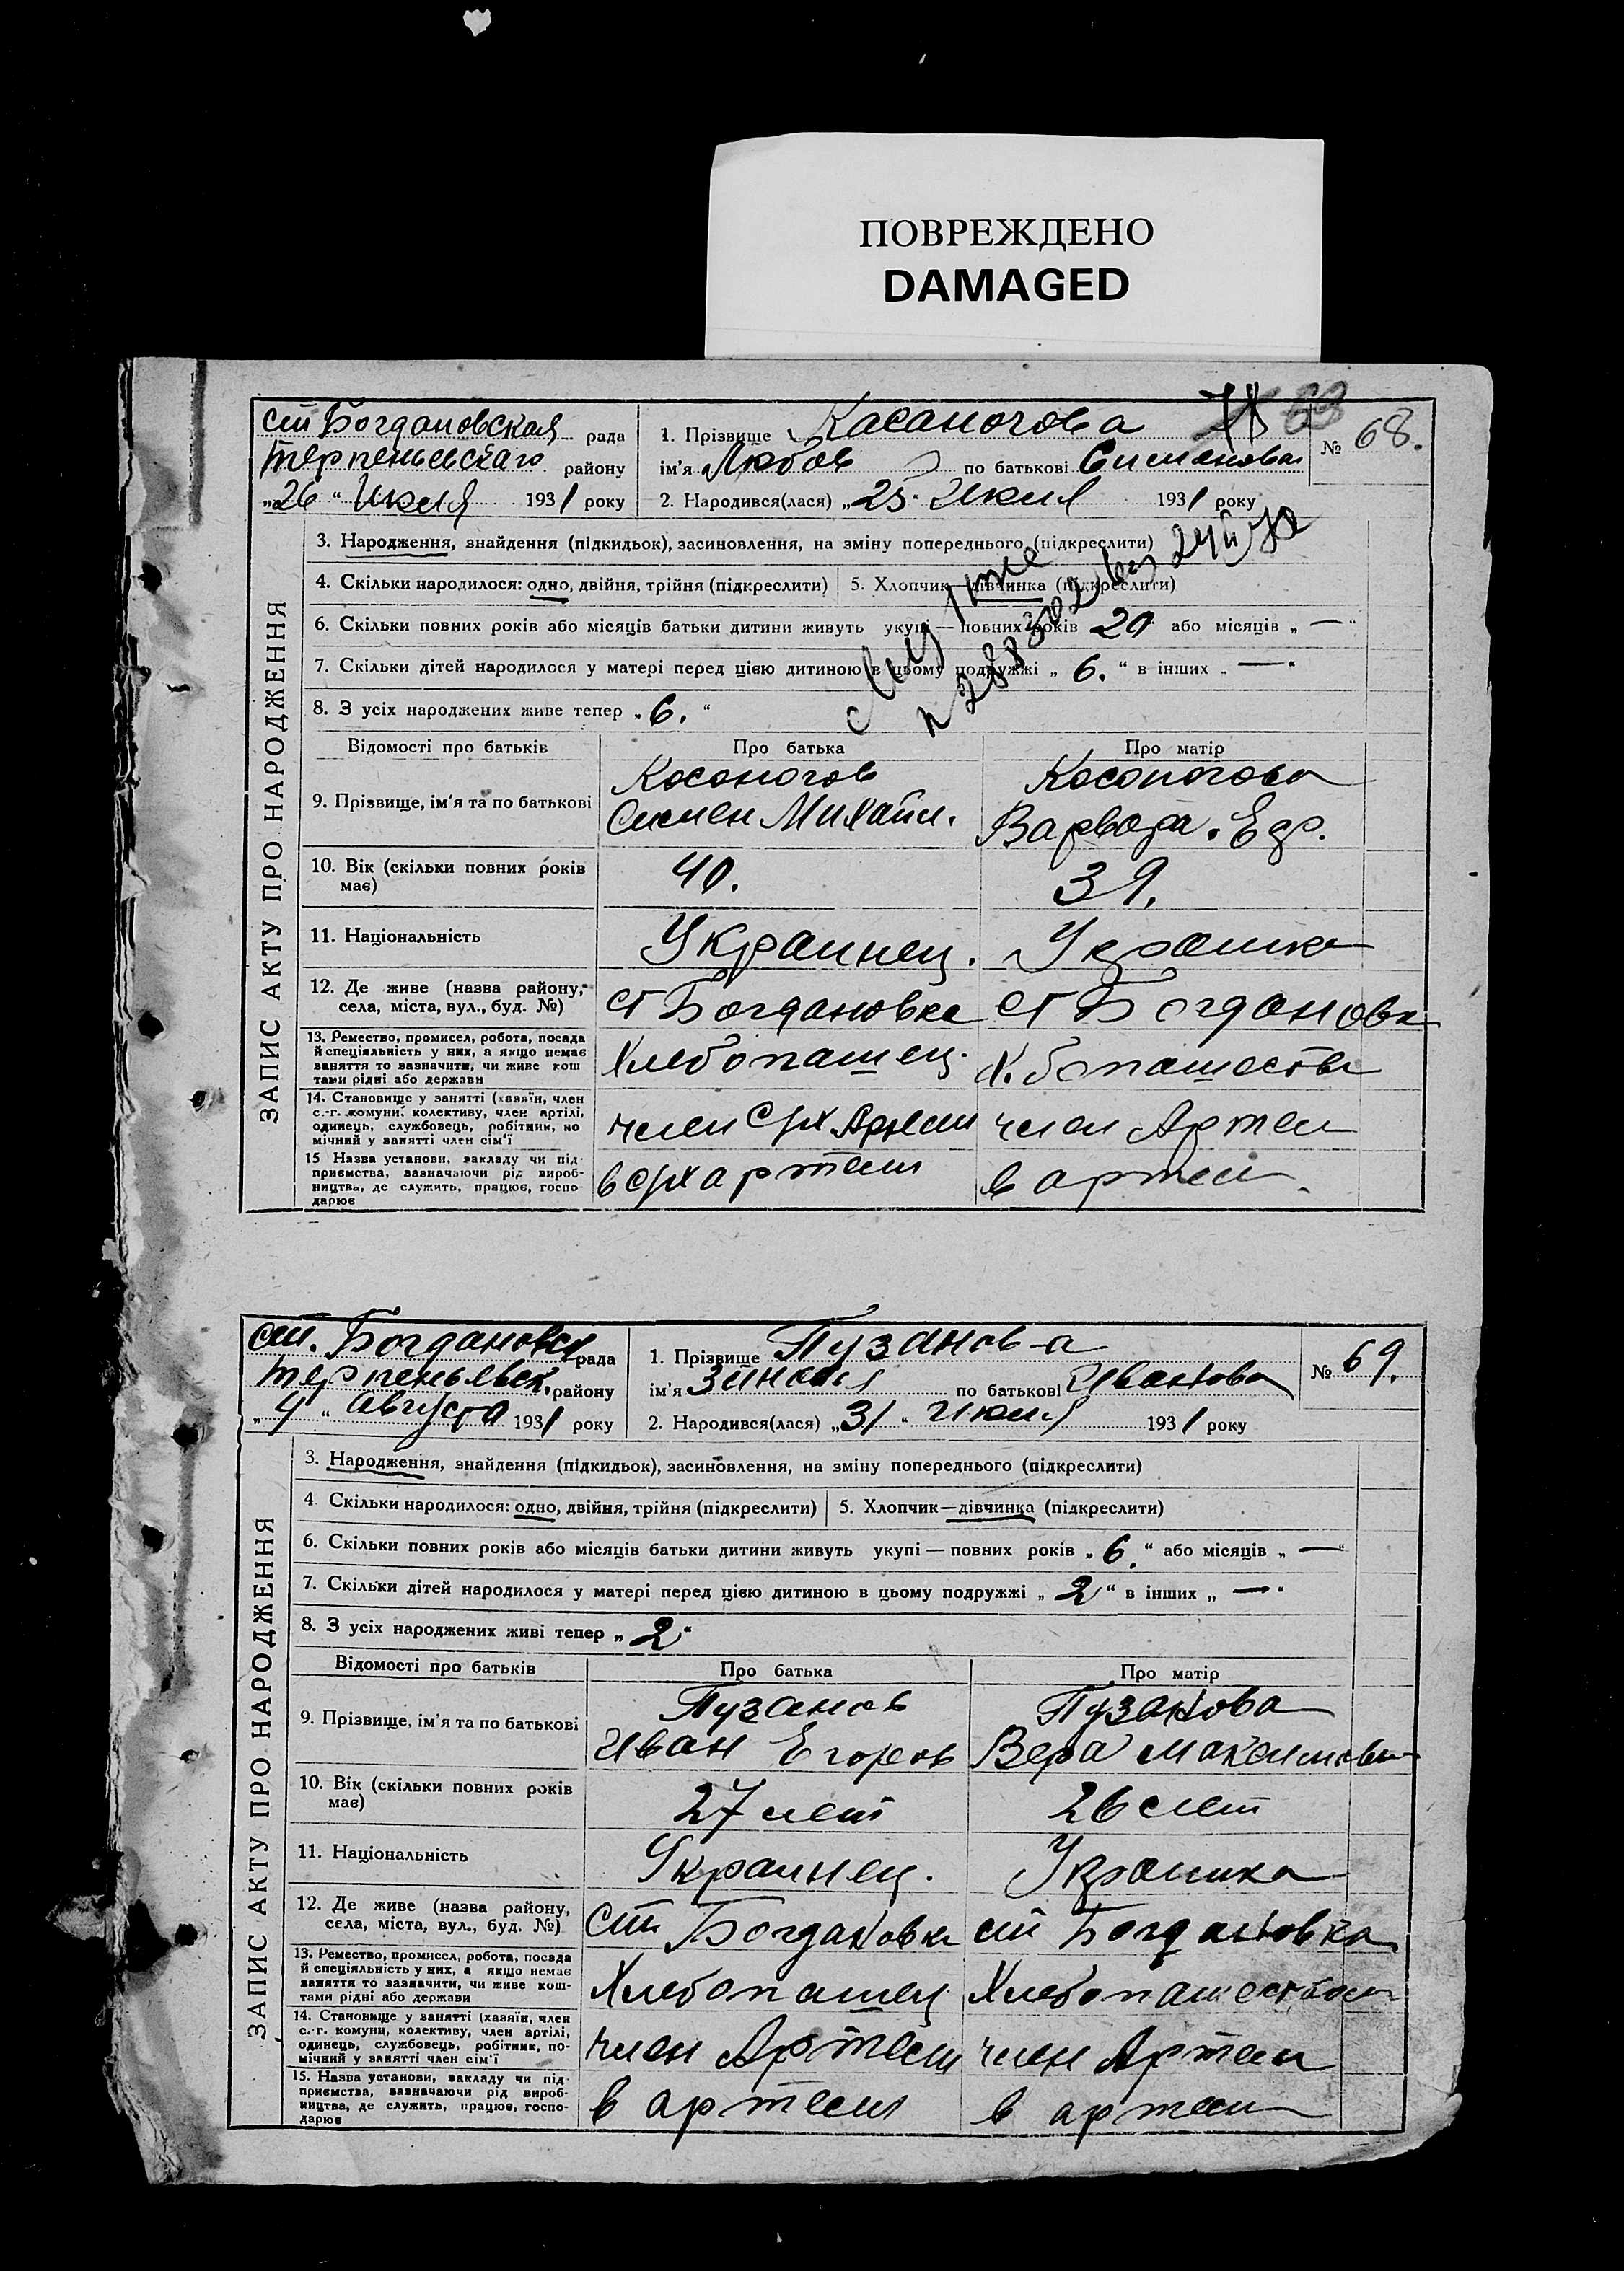 ПОВРЕЖДЕНО
DAMAGED
ст Богдановская рада
Терпеньевскаго району
„26“ Июля 1931 року
1. Прізвище Касаногова
ім'я Любов по батькові Сименовна
2. Народився(лася) „25“ Июля 1931 року
78 69
№ 68.
ЗАПИС АКТУ ПРО НАРОДЖЕННЯ
3. Народження, знайдення (підкидьок), засиновлення, на зміну попереднього (підкреслити)
4. Скільки народилося: одно, двійня, трійня (підкреслити) 5. Хлопчик—дівчинка (підкреслити)
6. Скільки повних років або місяців батьки дитини живуть укупі — повних років 20 або місяців „—“
7. Скільки дітей народилося у матері перед цією дитиною в цьому подружжі „6.“ в інших „—“
8. З усіх народжених живе тепер „6.“
Відомості про батьків Про батька Про матір
9. Прізвище, ім'я та по батькові
Косоногов
Симен Михайл.
Косоногова
Варвара. Egp.
10. Вік (скільки повних років
має)
40. 39.
11. Національність Украинец. Украинка
12. Де живе (назва району,
села, міста, вул., буд. №)
ст Богдановка ст Богдановка
13. Ремество, промисел, робота, посада
й спеціяльність у них, а якщо немає
заняття то зазначити, чи живе кош
тами рідні або держави
Хлебопашец. Х. бопашеств
14. Становище у занятті (хазяїн, член
с.-г. комуни, колективу, член артілі,
одинець, службовець, робітник, по
мічний у занятті член сім'ї
член С/х Артели член Артели
15 Назва установи, закладу чи під-
приємства, зазначаючи рід вироб-
ництва, де служить, працює, госпо-
дарює
в с/х артели в артели.
ст. Богдановск рада
Терпеньевск. району
„4“ Августа 1931 року
1. Прізвище Пузанова
ім'я Зинаия по батькові Ивановна
2. Народився(лася) „31“ Июля 1931 року
№ 69.
ЗАПИС АКТУ ПРО НАРОДЖЕННЯ
3. Народження, знайдення (підкидьок), засиновлення, на зміну попереднього (підкреслити)
4 Скільки народилося: одно, двійня, трійня (підкреслити) 5. Хлопчик—дівчинка (підкреслити)
6. Скільки повних років або місяців батьки дитини живуть укупі — повних років „6.“ або місяців „—“
7. Скільки дітей народилося у матері перед цією дитиною в цьому подружжі „2“ в інших „—“
8. З усіх народжених живі тепер „2“
Відомості про батьків Про батька Про матір
9. Прізвище, ім'я та по батькові
Пузанов
Иван Егоров
Пузанова
Вера Максимовна
10. Вік (скільки повних років
має)
27 лет 26 лет
11. Національність Украинец. Украинка
12. Де живе (назва району,
села, міста, вул., буд. №)
ст Богдановка ст Богдановка
13. Ремество, промисел, робота, посада
й спеціяльність у них, а якщо немає
заняття то зазначити, чи живе кош-
тами рідні або держави
Хлебопашец Хлебопашеством
14. Становище у занятті (хазяїн, член
с.-г. комуни, колективу, член артілі,
одинець, службовець, робітник, по-
мічний у занятті член сім'ї
член Артели член Артели
15. Назва установи, закладу чи під-
приємства, зазначаючи рід вироб-
ництва, де служить, працює, госпо-
дарює
в артели в артели